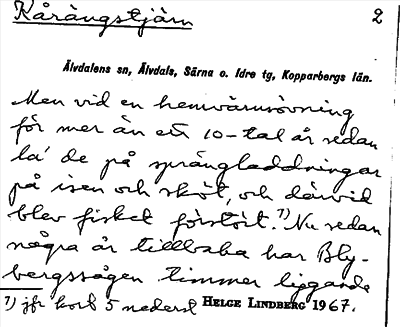 Kårängstjärn 2
Älvdalens sn, Älvdals, Särna o. Idre tg, Kopparbergs län.
Men vid en hemvärnsövning
för mer än ett 10-tal år sedan
la' de på sprängladdningar
på isen och sköt, och därvid
blev fisket förstört. 7) Nu sedan
några år tillbaka har Bly-
bergssågen timmer liggande
7) jfr kort 5 nederst HELGE LINDBERG 1967.